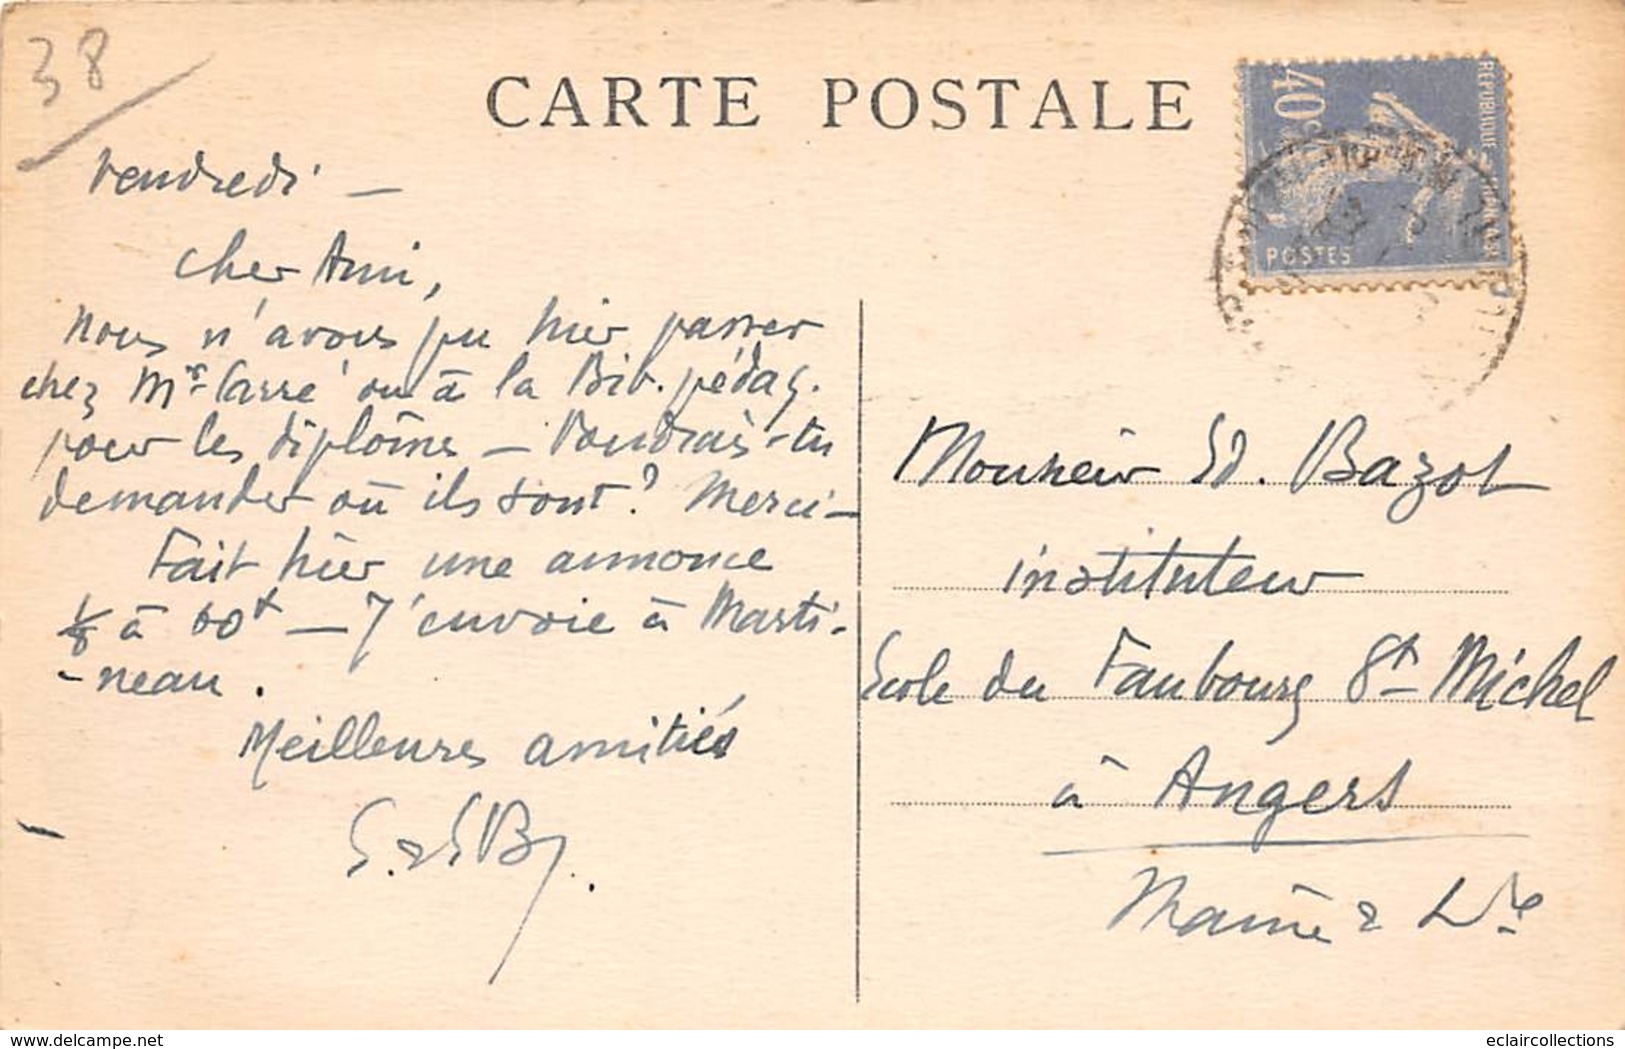 38
CARTE POSTALE
REPUBLIQUE FRANÇAISE
40c
POSTES
Vendredi —
Cher Ami,
Nous n'avons pu hier passer
chez Mr Carré ou à la Bib. pédag.
pour les diplômes — Voudrais-tu
demander où ils sont? Merci —
Fait hier une annonce
à 60f — J'envoie à Marti-
-neau.
Meilleures amitiés
Monsieur Ed. Bazot
instituteur
Ecole du Faubourg St Michel
à Angers
Maine & Lre
www.delcampe.net
eclaircollections